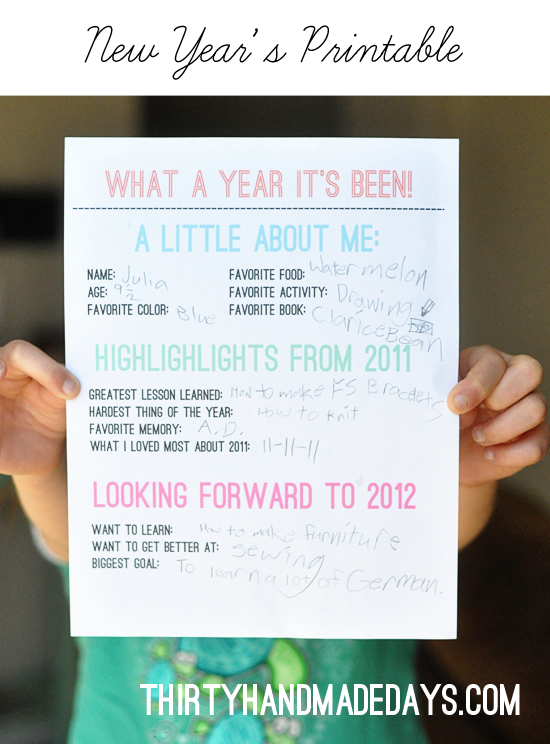 New Year's Printable
WHAT A YEAR IT'S BEEN!
A LITTLE ABOUT ME:
NAME: Julia
AGE: 9 1/2
FAVORITE COLOR: Blue
FAVORITE FOOD: Watermelon
FAVORITE ACTIVITY: Drawing
FAVORITE BOOK: Clarice Bean
HIGHLIGHLIGHTS FROM 2011
GREATEST LESSON LEARNED: How to make FS Bracelets
HARDEST THING OF THE YEAR: How to knit
FAVORITE MEMORY: A.D.
WHAT I LOVED MOST ABOUT 2011: 11-11-11
LOOKING FORWARD TO 2012
WANT TO LEARN: How to make furniture
WANT TO GET BETTER AT: sewing
BIGGEST GOAL: To learn a lot of German.
THIRTYHANDMADEDAYS.COM